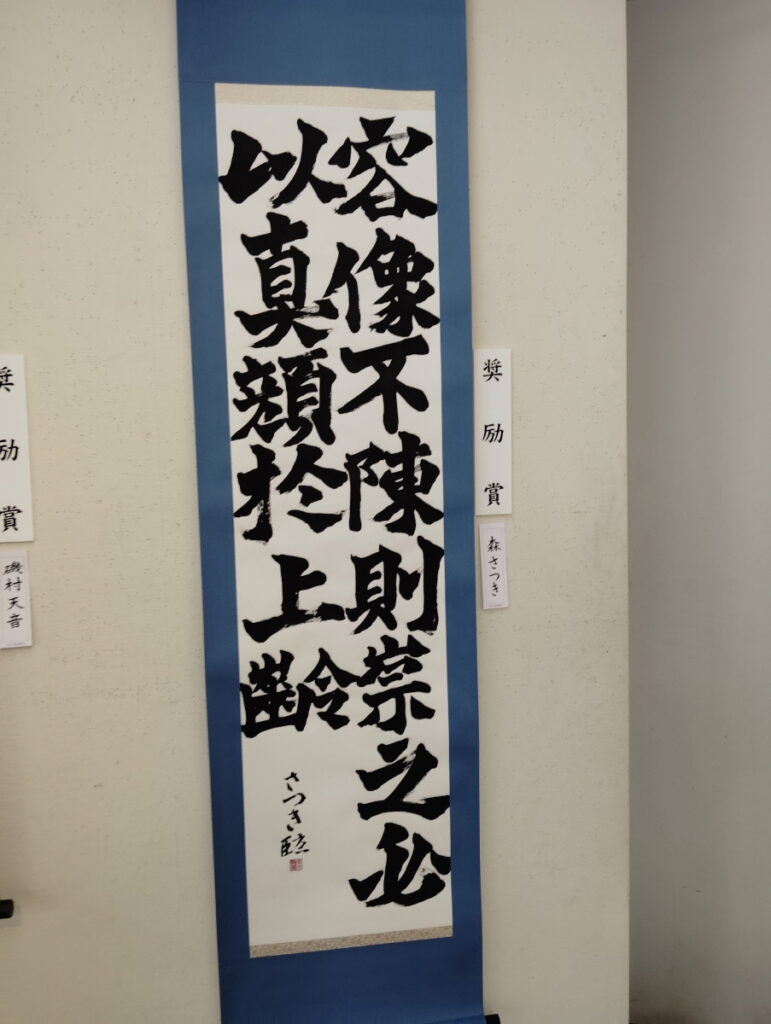 奨励賞
森さつき
容像不陳則崇之必
以真顏於上齡
さつき臨
奨励賞
磯村天音